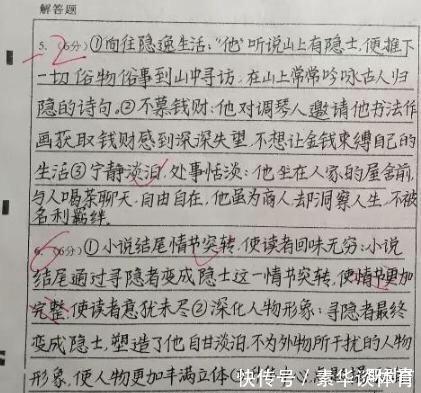 解答题
5. (6分) ①向往隐逸生活:“他”听说山上有隐士,便推下
-2
一切俗物俗事到山中寻访,在山上常常吟咏古人归
隐的诗句。②不慕钱财:他对调琴人邀请他书法作
画获取钱财感到深深失望,不想让金钱束缚自己的
生活③宁静淡泊,处事恬淡:他坐在人家的屋舍前,
与人喝茶聊天,自由自在,他虽为商人却洞察人生,不被
名利羁绊。
6. (6分) ①小说结尾情节突转,使读者回味无穷:小说
结尾通过寻隐者变成隐士这一情节突转,使情节更加
完整,使读者意犹未尽②深化人物形象:寻隐者最终
变成隐士,塑造了他自甘淡泊,不为外物所干扰的人物
形象,使人物更加丰满立体
快传号/素华谈体育